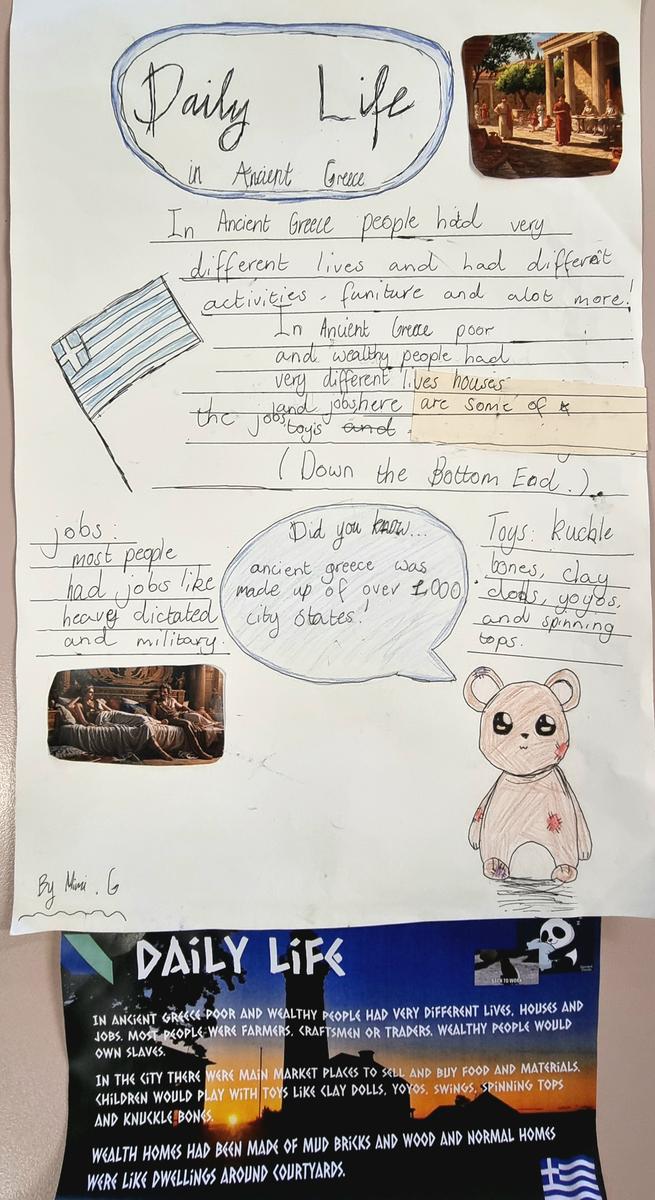 Daily Life
in Ancient Greece
In Ancient Greece people had very
different lives and had different
activities, funiture and alot more!
In Ancient Greece poor
and wealthy people had
very different lives houses
and jobs here are some of
the jobs toys and
(Down the Bottom End.)
jobs:
most people
had jobs like
heavey dictated
and military.
Did you know...
ancient greece was
made up of over 1000
city states!
Toys: kuckle
bones, clay
dolls, yoyos,
and spinning
tops.
By Mimi . G
DAILY LIFE
BACK TO WORK
IN ANCIENT GREECE POOR AND WEALTHY PEOPLE HAD VERY DIFFERENT LIVES, HOUSES AND
JOBS. MOST PEOPLE WERE FARMERS, CRAFTSMEN OR TRADERS. WEALTHY PEOPLE WOULD
OWN SLAVES.
IN THE CITY THERE WERE MAIN MARKET PLACES TO SELL AND BUY FOOD AND MATERIALS.
CHILDREN WOULD PLAY WITH TOYS LIKE CLAY DOLLS, YOYOS, SWINGS, SPINNING TOPS
AND KNUCKLE BONES.
WEALTH HOMES HAD BEEN MADE OF MUD BRICKS AND WOOD AND NORMAL HOMES
WERE LIKE DWELLINGS AROUND COURTYARDS.